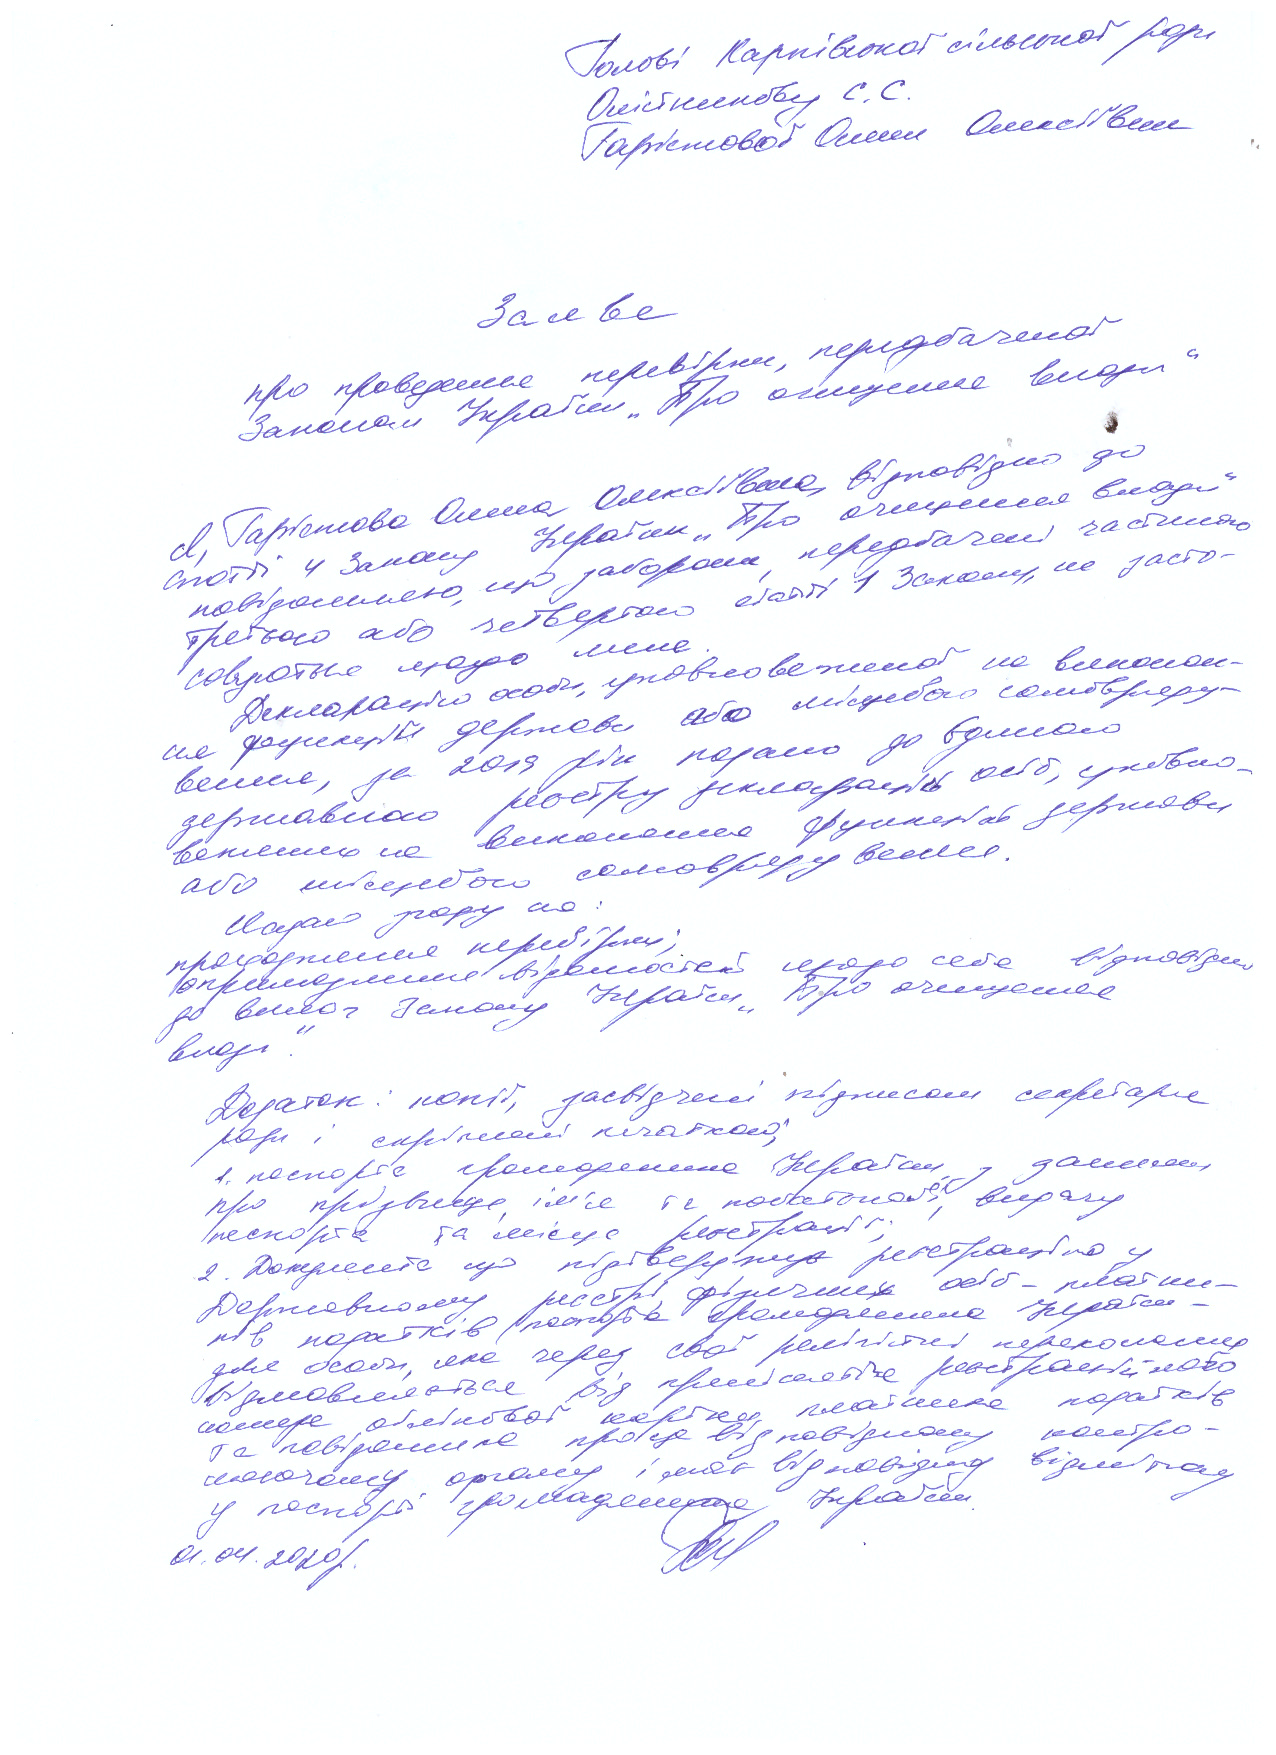 Голові Карпівської сільської ради
С.С.
Олени Олексіївни
Заява
про проведення перевірки, передбаченої
Законом України „Про очищення влади“
Я, Олена Олексіївна, відповідно до
статті 4 Закону України „Про очищення влади“
повідомляю, що заборони, передбачені частиною
третьою або четвертою статті 1 Закону, не засто-
совуються щодо мене.
Декларацію особи, уповноваженої на виконан-
ня функцій держави або місцевого самовряду-
вання, за 2019 рік подано до Єдиного
державного реєстру декларацій осіб, уповно-
важених на виконання функцій держави
або місцевого самоврядування.
Надаю згоду на:
проходження перевірки;
оприлюднення відомостей щодо себе відповідно
до вимог Закону України „Про очищення
влади“.
Додаток: копії, засвідчені підписом секретаря
ради і скріплені печаткою;
1. паспорта громадянина України з даними
про прізвище, ім'я та по батькові, видачу
паспорта та місце реєстрації;
2. Документа що підтверджує реєстрацію у
Державному реєстрі фізичних осіб – платни-
ків податків (паспорта громадянина України –
для особи, яка через свої релігійні переконання
відмовляється від прийняття реєстраційного
номера облікової картки платника податків
та повідомила про це відповідному контро-
люючому органу і має відповідну відмітку
у паспорті громадянина України.
01.04.2020р.